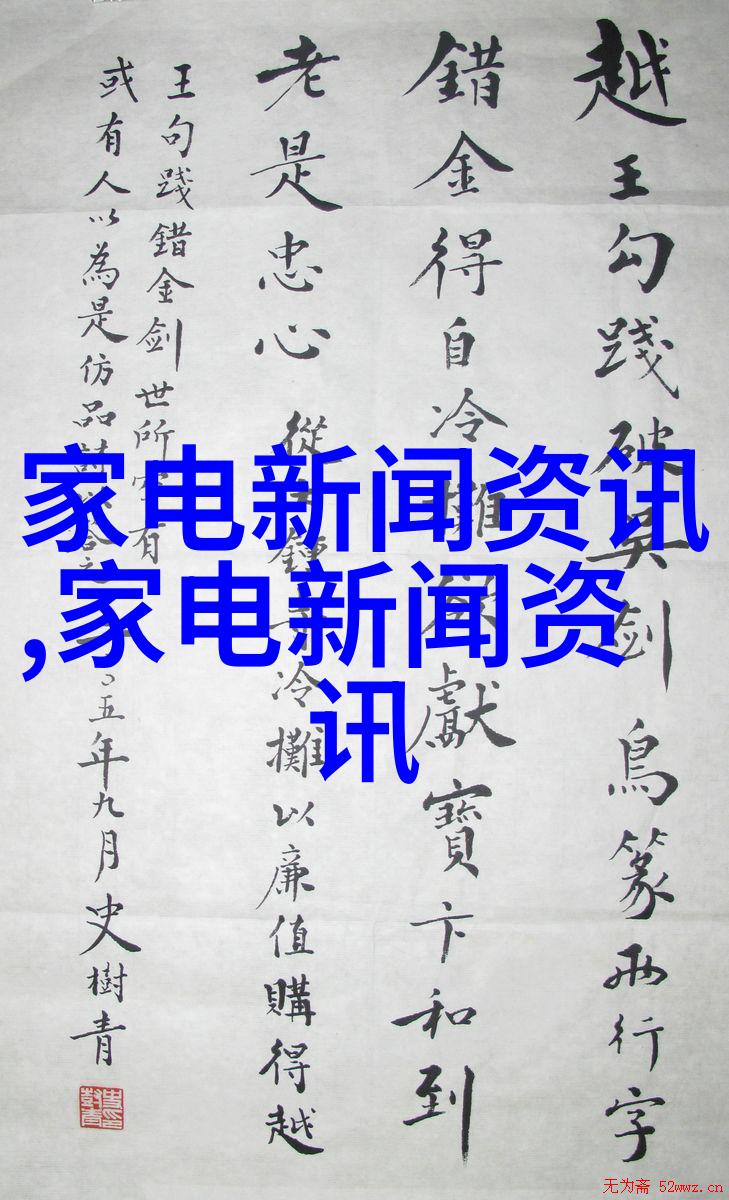 越王勾踐破吳剑鳥篆兩行字
錯金得自冷攤獻寶卞和到
老是忠心 從鍾寺冷攤以廉值購得越
王句踐錯金剑世所罕有
或有人以為是仿品詩以答之〇五年九月史樹青
家电新闻资讯
,家电新闻资
讯
无为斋 52wwz.cn